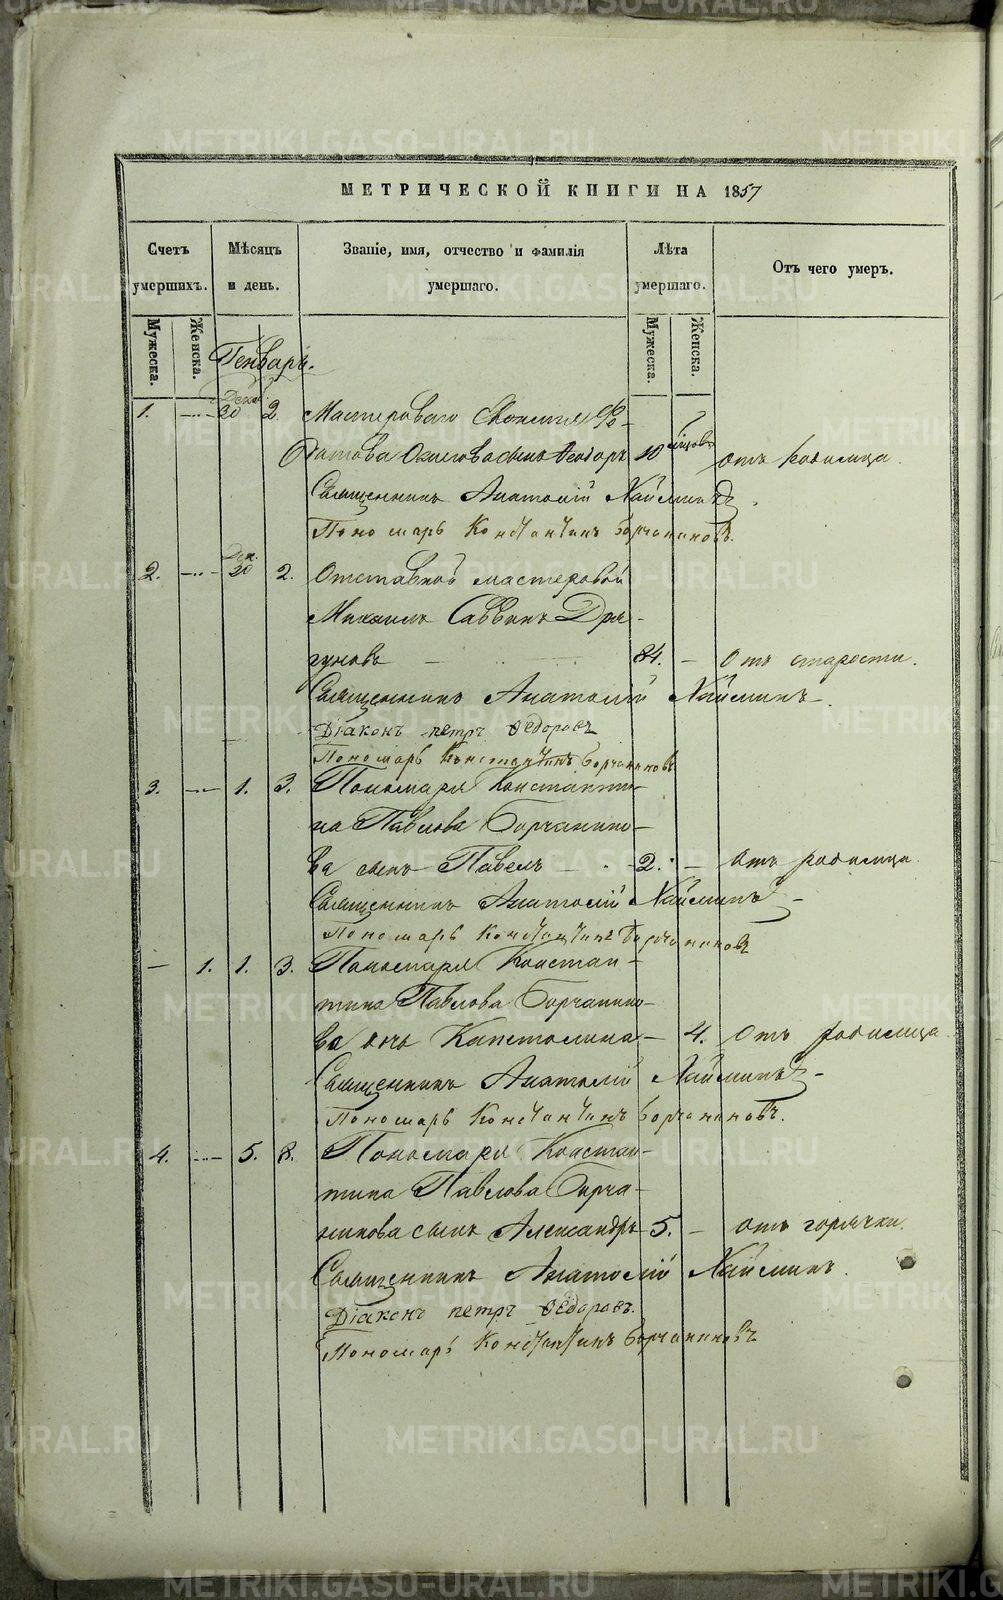 METRIKI.GASO-URAL.RU
МЕТРИЧЕСКОЙ КНИГИ НА 1857
Счетъ умершихъ.
Мѣсяцъ и день.
Званіе, имя, отчество и фамилія умершаго.
Лѣта умершаго.
Отъ чего умеръ.
Мужеска.
Женска.
Мужеска.
Женска.
Генварь.
Дека
1. 30 2. Мастероваго
сынъ Ѳеодоръ 10 мѣсяцовъ отъ родимца.
Священникъ Анатолій Наймушинъ
Пономарь Константинъ Борчаниновъ.
Дек.
2. 30 2. Отставной мастеровой
Михаилъ Саввинъ Дря-
гуновъ 84. Отъ старости.
Священникъ Анатолій
Діаконъ петръ Ѳедоровъ
Пономарь Константинъ Борчаниновъ
3. 1. 3. Пономаря Константи-
на Павлова Борчанино-
ва сынъ Павелъ 2. Отъ родимца
Священникъ Анатолій
Пономарь Константинъ Борчаниновъ
1. 1. 3. Пономаря Констан-
тина Павлова Борчанино-
ва дочь Капетолина 4. Отъ родимца
Священникъ Анатолій
Пономарь Константинъ Борчаниновъ.
4. 5. 8. Пономаря Констан-
тина Павлова Борча-
нинова сынъ Александръ 5. отъ горячки.
Священникъ Анатолій
Діаконъ петръ Ѳедоровъ.
Пономарь Константинъ Борчаниновъ